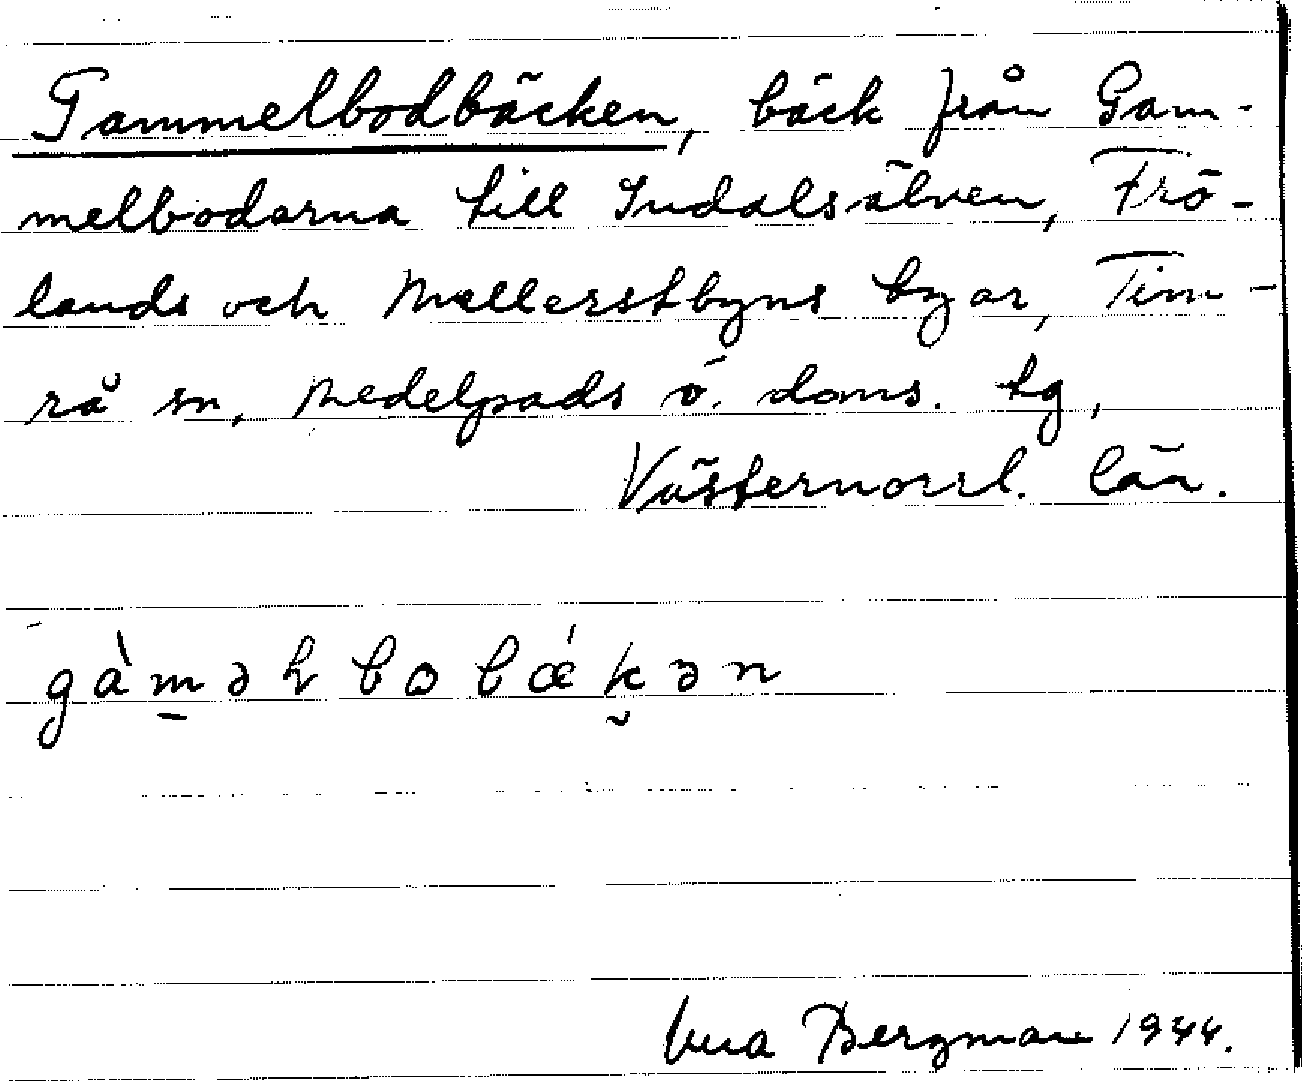 Gammelbodbäcken, bäck från Gam-
melbodarna till Indalsälven, Frö-
lands och Mellerstbyns byar, Tim-
rå sn, Medelpads ö. doms. tg,
Västernorrl. län.
gàm̱əɫ bobǽk̮ən
Bergman 1944.